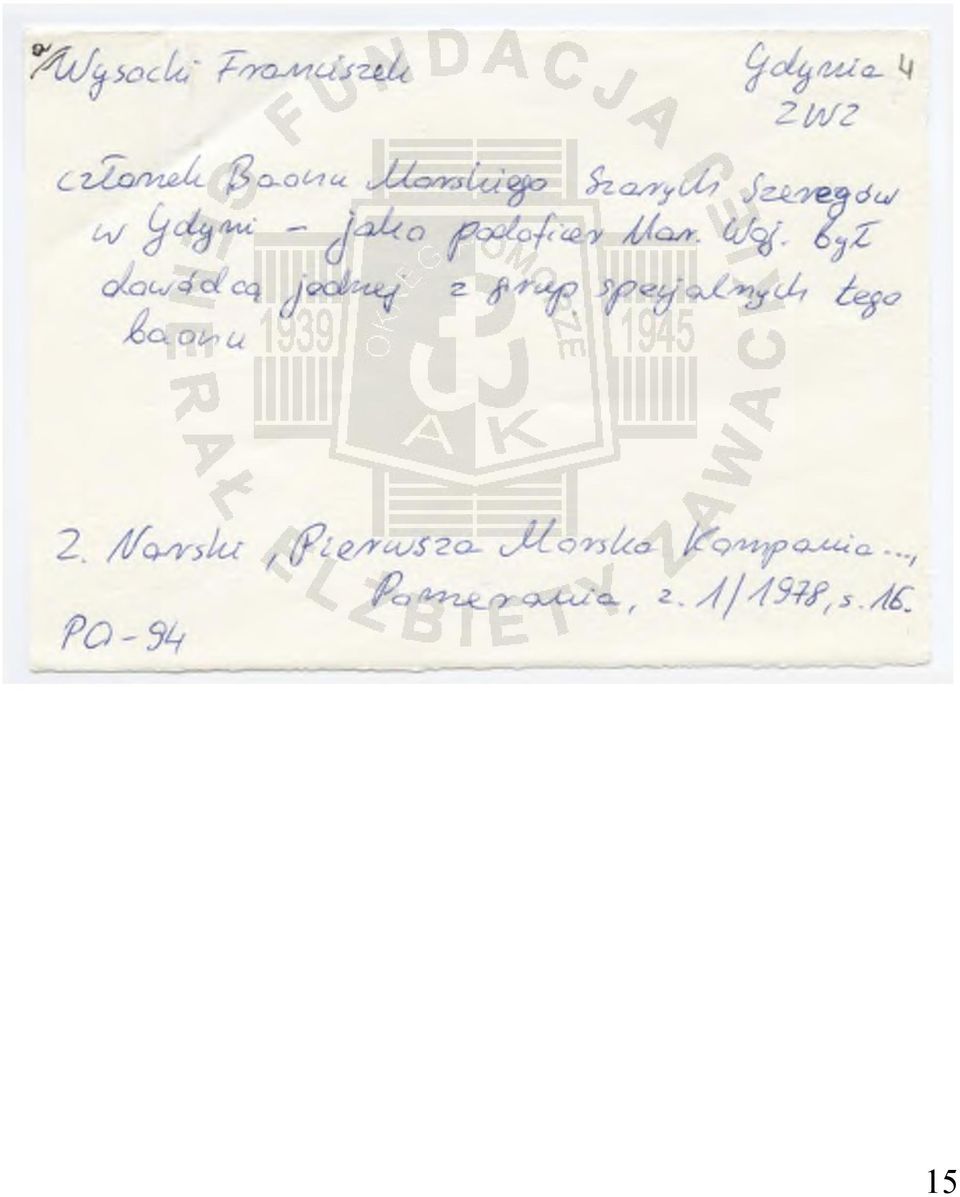 a/ Wysocki Franciszek Gdynia 4
ZWZ
członek Baonu Morskiego Szarych Szeregów
w Gdyni - jako podoficer Mar. Woj. był
dowódcą jednej z grup specjalnych tego
baonu
Z. Narski, Pierwsza Morska Kompania...,
Pomerania, z. 1/1978, s. 16.
PO-94
FUNDACJA GENERAŁ ELŻBIETY ZAWACKIEJ
OKRĘG POMORZE
1939 1945
AK
15